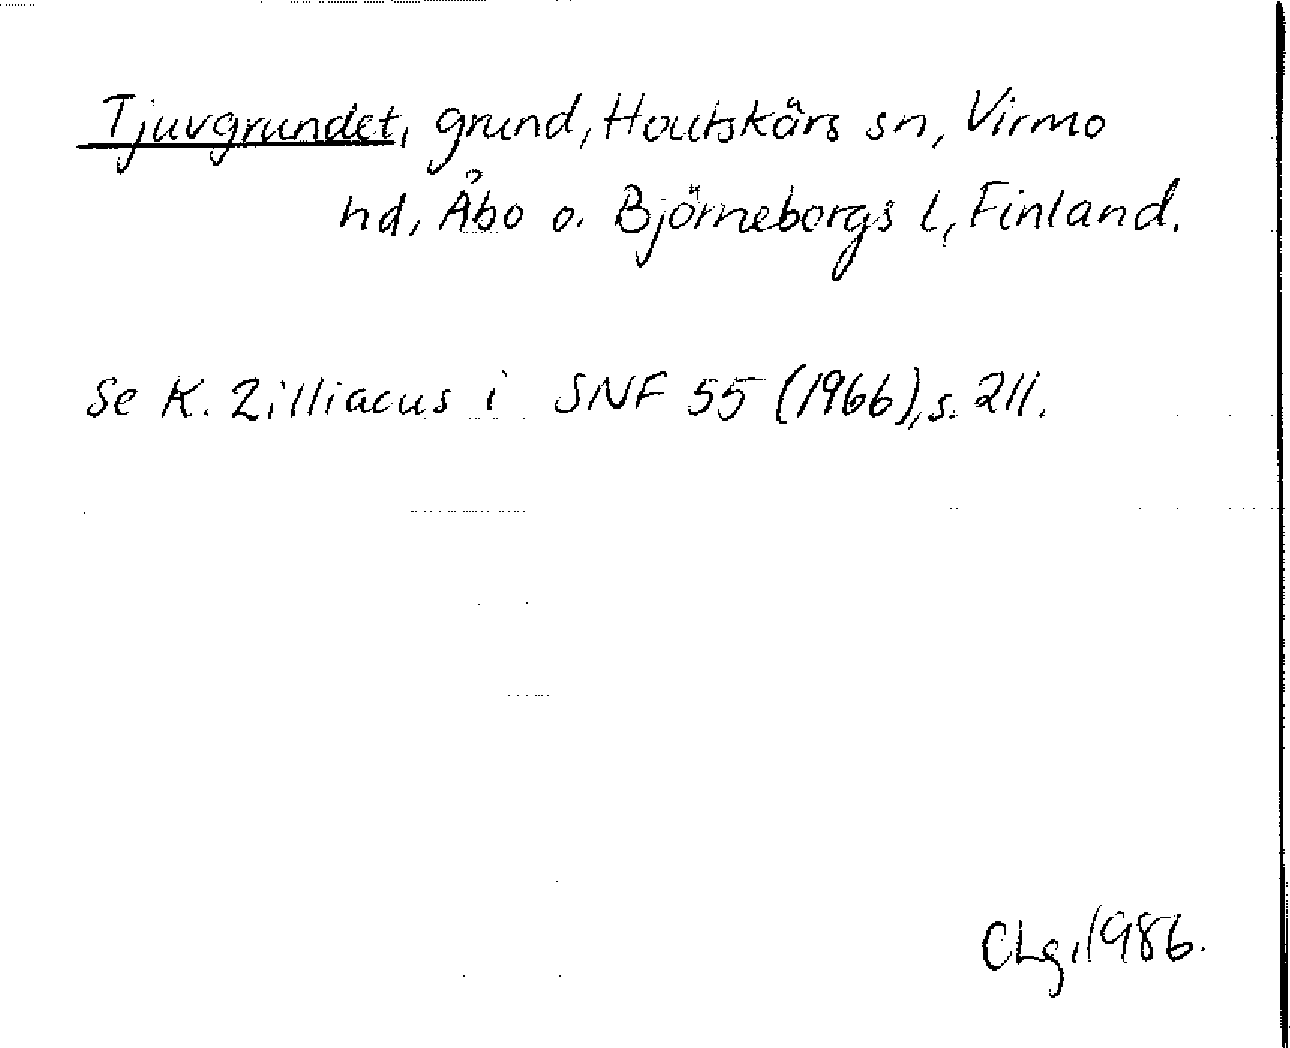 Tjuvgrundet, grund, Houtskärs sn, Virmo
hd, Åbo o. Björneborgs l, Finland.
Se K. Zilliacus i SNF 55 (1966), s. 211.
CLg, 1986.